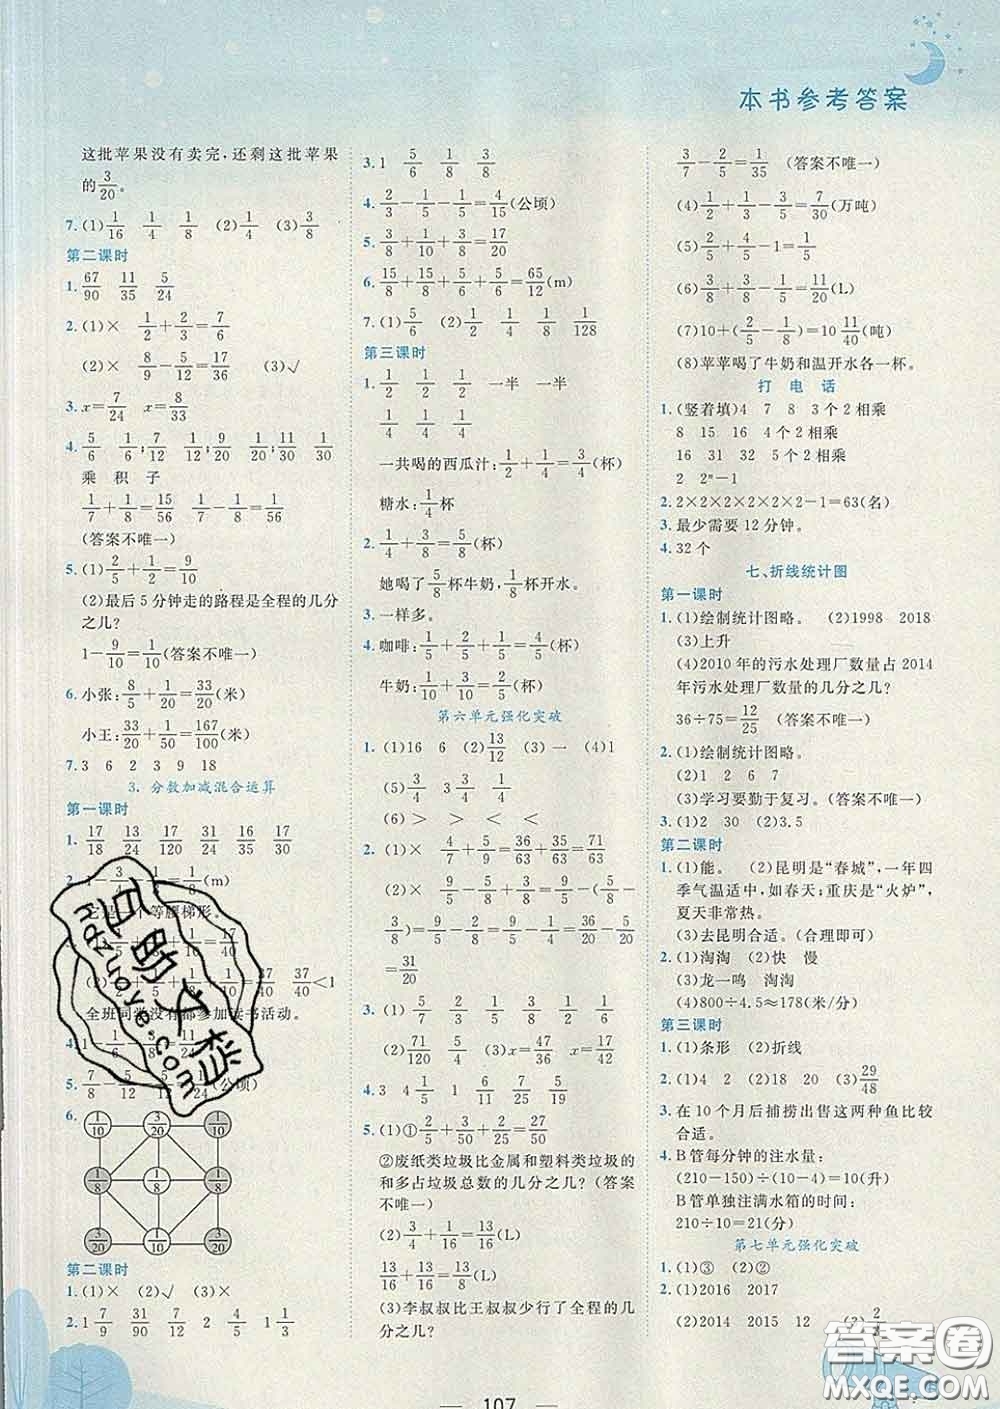 本书参考答案
这批苹果没有卖完,还剩这批苹果
的3/20。
7.(1)1/16 1/4 1/8 (2)1/4 (3)3/8
第二课时
1. 67/90 11/35 5/24
2.(1)× 1/2+2/3=7/6
(2)× 8/9-5/12=17/36 (3)√
3. x=7/24 x=8/33
4. 5/6 1/6; 9/20 1/20; 11/30 1/30
乘 积 子
1/7+1/8=15/56 1/7-1/8=1/56
(答案不唯一)
5.(1)2/5+1/2=9/10
(2)最后5分钟走的路程是全程的几分
之几?
1-9/10=1/10(答案不唯一)
6. 小张:8/5+1/20=33/20(米)
小王:33/20+1/50=167/100(米)
7. 3 6 2 3 9 18
3. 分数加减混合运算
第一课时
1. 17/18 13/24 17/20 31/24 16/15 17/30
1/8(m)
一个等腰梯形。
17/40
37/40 37/40<1
全班同学没有都参加读书活动。
5. (公顷)
6. 1/10 3/20 1/10
1/8 1/8 1/8
3/20 1/10 3/20
第二课时
1.(1)× (2)√ (3)×
2. 1 7/9 31/90 7/12 2 1 1/3
3. 1 5/6 1/8 3/8
4. 2/3-1/5-1/5=4/15(公顷)
5. 3/8+1/10+3/8=17/20
6. 15/8+15/8+5/6+5/6=65/12(m)
7.(1)5/6 (2)1/2 1/4 1/8 1/128
第三课时
1. 1/2 1/2 1/2 一半 一半
1/4 1/4 1/4
一共喝的西瓜汁:1/2+1/4=3/4(杯)
糖水:1/4杯
2. 1/4+3/8=5/8(杯)
她喝了5/8杯牛奶,1/8杯开水。
3. 一样多。
4. 咖啡:1/5+1/2+1/10=4/5(杯)
牛奶:1/10+3/10=2/5(杯)
第六单元强化突破
1.(1)16 6 (2)13/12 (3)一 (4)1
(5)1/2 3/4 3/4 1/4
(6)> > < <
2.(1)× 4/7+5/9=36/63+35/63=71/63
(2)× 9/5-(5/8-3/8)=9/5-1/4=36/20-5/20
=31/20
3.(1)5/7 2/7 1/2 1/3 7/12 1/12
(2)71/120 5/24 (3)x=47/56 x=17/42
4. 3 4 1/5 1 6/11 7/25 5/9
5.(1)①2/5+3/10+4/25=27/50
②废纸类垃圾比金属和塑料类垃圾的
和多占垃圾总数的几分之几?(答案
不唯一)
(2)3/4+1/16=13/16(L)
13/16+13/16=13/8(L)
(3)李叔叔比王叔叔少行了全程的几
分之几?
3/7-2/5=1/35 (答案不唯一)
(4)1/2+1/3-3/5=7/30(万吨)
(5)1/2+4/5-1=3/10
(6)3/8+3/8-1/16=11/16(L)
(7)10+(2/5-1/8)=10 11/40(吨)
(8)苹苹喝了牛奶和温开水各一杯。
打 电 话
1.(竖着填)4 7 8 3个2相乘
8 15 16 4个2相乘
16 31 32 5个2相乘
2 2ⁿ-1
2. 2×2×2×2×2×2-1=63(名)
3. 最少需要12分钟。
4. 32个
七、折线统计图
第一课时
1.(1)绘制统计图略。 (2)1998 2018
(3)上升
(4)2010年的污水处理厂数量占2014
年污水处理厂数量的几分之几?
36÷75=12/25 (答案不唯一)
2.(1)绘制统计图略。
(2)1 2 6 7
(3)学习要勤于复习。(答案不唯一)
3.(1)2 1 (2)3.5
第二课时
1.(1)能。 (2)昆明是“春城”,一年四
季气温适中,如春天;重庆是“火炉”,
夏天非常热。
(3)去昆明合适。(合理即可)
2.(1)淘淘 (2)快 慢
(3)龙一鸣 淘淘
(4)800÷4.5≈178(米/分)
第三课时
1.(1)条形 (2)折线
2.(1)1 1 (2)2 3.5 (3)29/48
3. 在10个月后捕捞出售这两种鱼比较
合适。
4. B管每分钟的注水量:
(210-150)÷(10-4)=10(升)
B管单独注满水箱的时间:
210÷10=21(分)
第七单元强化突破
1.(1)③ (2)②
2.(1)2016 2017
(2)2014 2015 12
107
答案圈
MXQE.COM